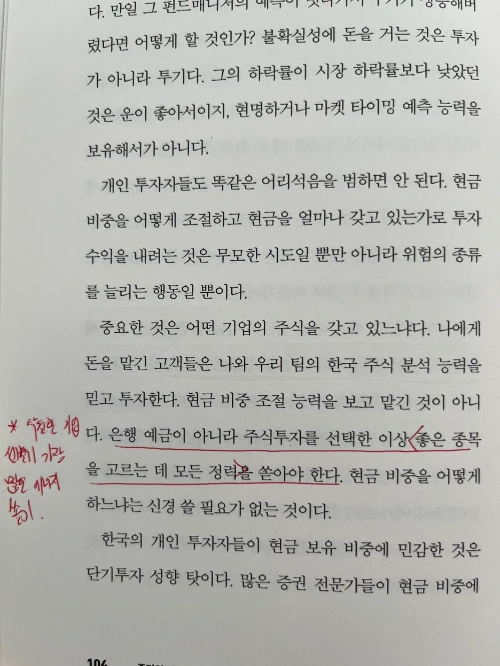 다. 만일 그 펀드매니저의 예측이
렸다면 어떻게 할 것인가? 불확실성에 돈을 거는 것은 투자
가 아니라 투기다. 그의 하락률이 시장 하락률보다 낮았던
것은 운이 좋아서이지, 현명하거나 마켓 타이밍 예측 능력을
보유해서가 아니다.
개인 투자자들도 똑같은 어리석음을 범하면 안 된다. 현금
비중을 어떻게 조절하고 현금을 얼마나 갖고 있는가로 투자
수익을 내려는 것은 무모한 시도일 뿐만 아니라 위험의 종류
를 늘리는 행동일 뿐이다.
중요한 것은 어떤 기업의 주식을 갖고 있느냐다. 나에게
돈을 맡긴 고객들은 나와 우리 팀의 한국 주식 분석 능력을
믿고 투자한다. 현금 비중 조절 능력을 보고 맡긴 것이 아니
다. 은행 예금이 아니라 주식투자를 선택한 이상 좋은 종목
을 고르는 데 모든 정력을 쏟아야 한다. 현금 비중을 어떻게
하느냐는 신경 쓸 필요가 없는 것이다.
한국의 개인 투자자들이 현금 보유 비중에 민감한 것은
단기투자 성향 탓이다. 많은 증권 전문가들이 현금 비중에
104